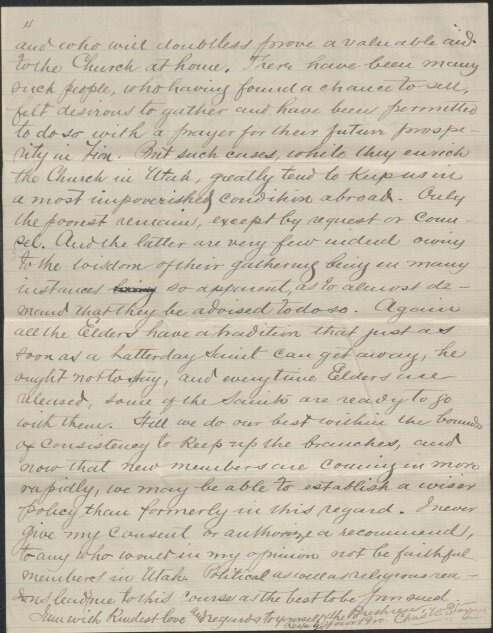 4
and who will doubtless prove a valuable aid
to the Church at home. There have been many
such people, who having found a chance to sell,
felt desirous to gather and have been permitted
to do so with a prayer for their future prospe-
rity in Zion. But such cases, while they enrich
the Church in Utah, greatly tend to keep us in
a most impoverished condition abroad. Only
the poorest remain, except by request or coun-
sel. And the latter are very few indeed owing
to the wisdom of their gathering being in many
instances so apparent, as to almost de-
mand that they be advised to do so. Again
all the Elders have a tradition that just as
soon as a Latterday Saint can get away, he
ought not to stay, and every time Elders are
released, some of the Saints are ready to go
with them. Still we do our best within the bounds
of consistency to keep up the branches, and
now that new members are coming in more
rapidly, we may be able to establish a wiser
policy than formerly in this regard. I never
give my consent or authorize a recommend,
to any who would in my opinion not be faithful
members in Utah. Political as well as religious rea-
sons lead me to this course as the best to be pursued.
I am with kindest love & regards to yourself & the Brethren,
Resp. Your Bro. Chas. W.